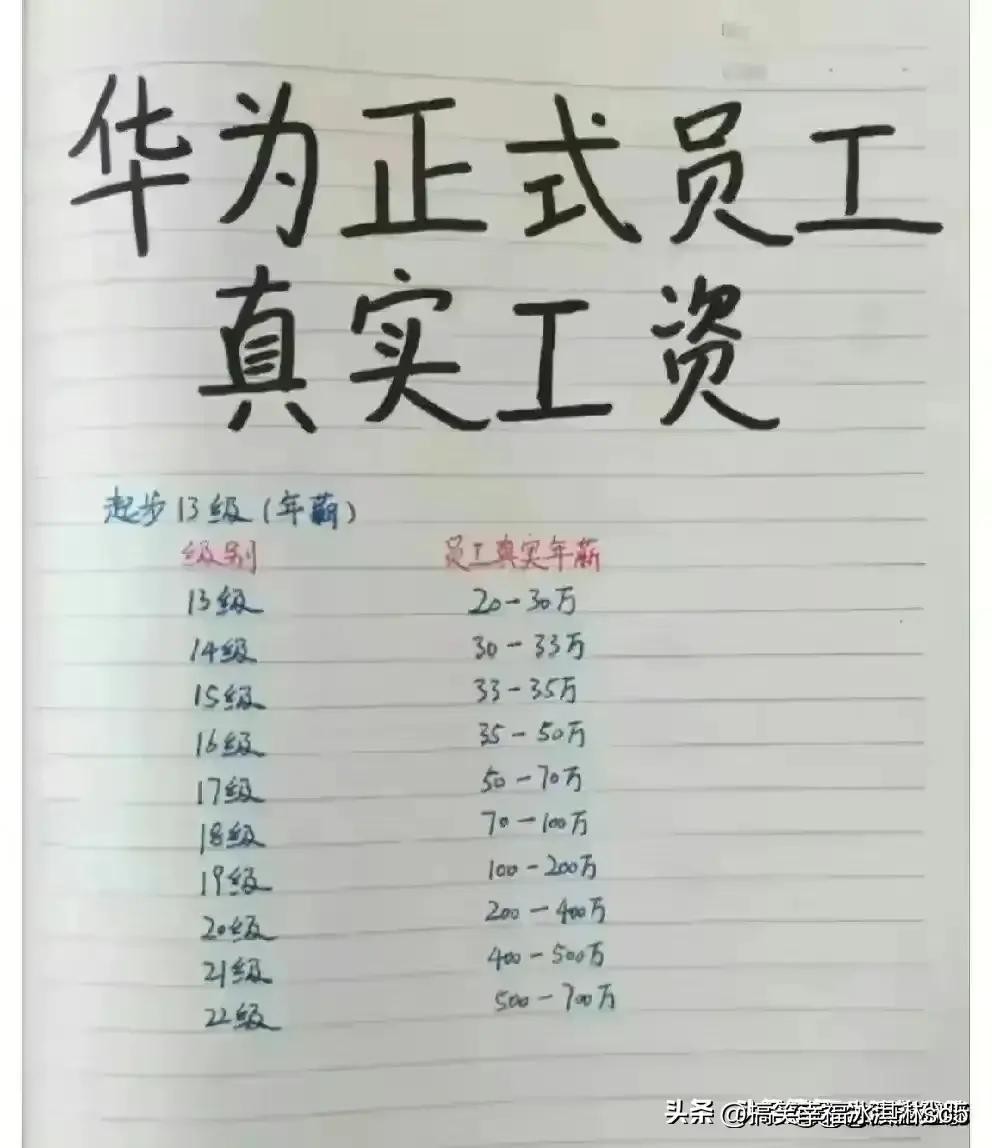 华为正式员工
真实工资
起步13级(年薪)
级别 员工真实年薪
13级 20-30万
14级 30-33万
15级 33-35万
16级 35-50万
17级 50-70万
18级 70-100万
19级 100-200万
20级 200-400万
21级 400-500万
22级 500-700万
头条 @搞笑幸福冰淇淋